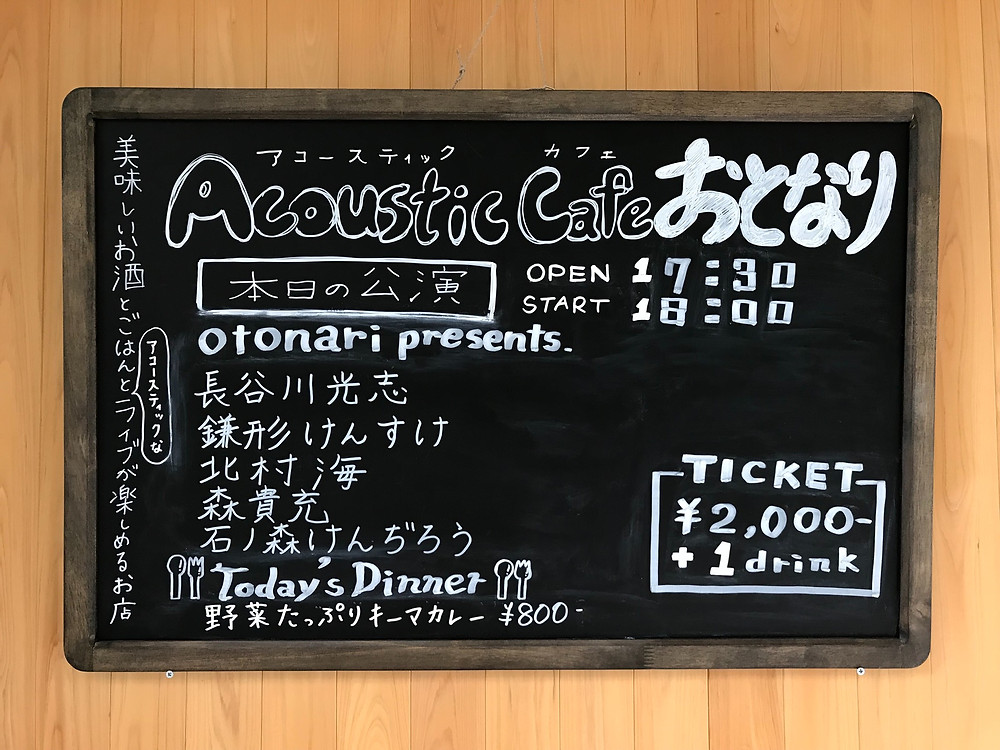 美味しいお酒とごはんとライブが楽しめるお店
アコースティックな
アコースティック カフェ
Acoustic Cafe おとなり
本日の公演
OPEN 17:30
START 18:00
otonari presents.
長谷川光志
鎌形けんすけ
北村海
森貴充
石ノ森けんぢろう
TICKET
¥2,000-
+1drink
Today's Dinner
野菜たっぷりキーマカレー ¥800-